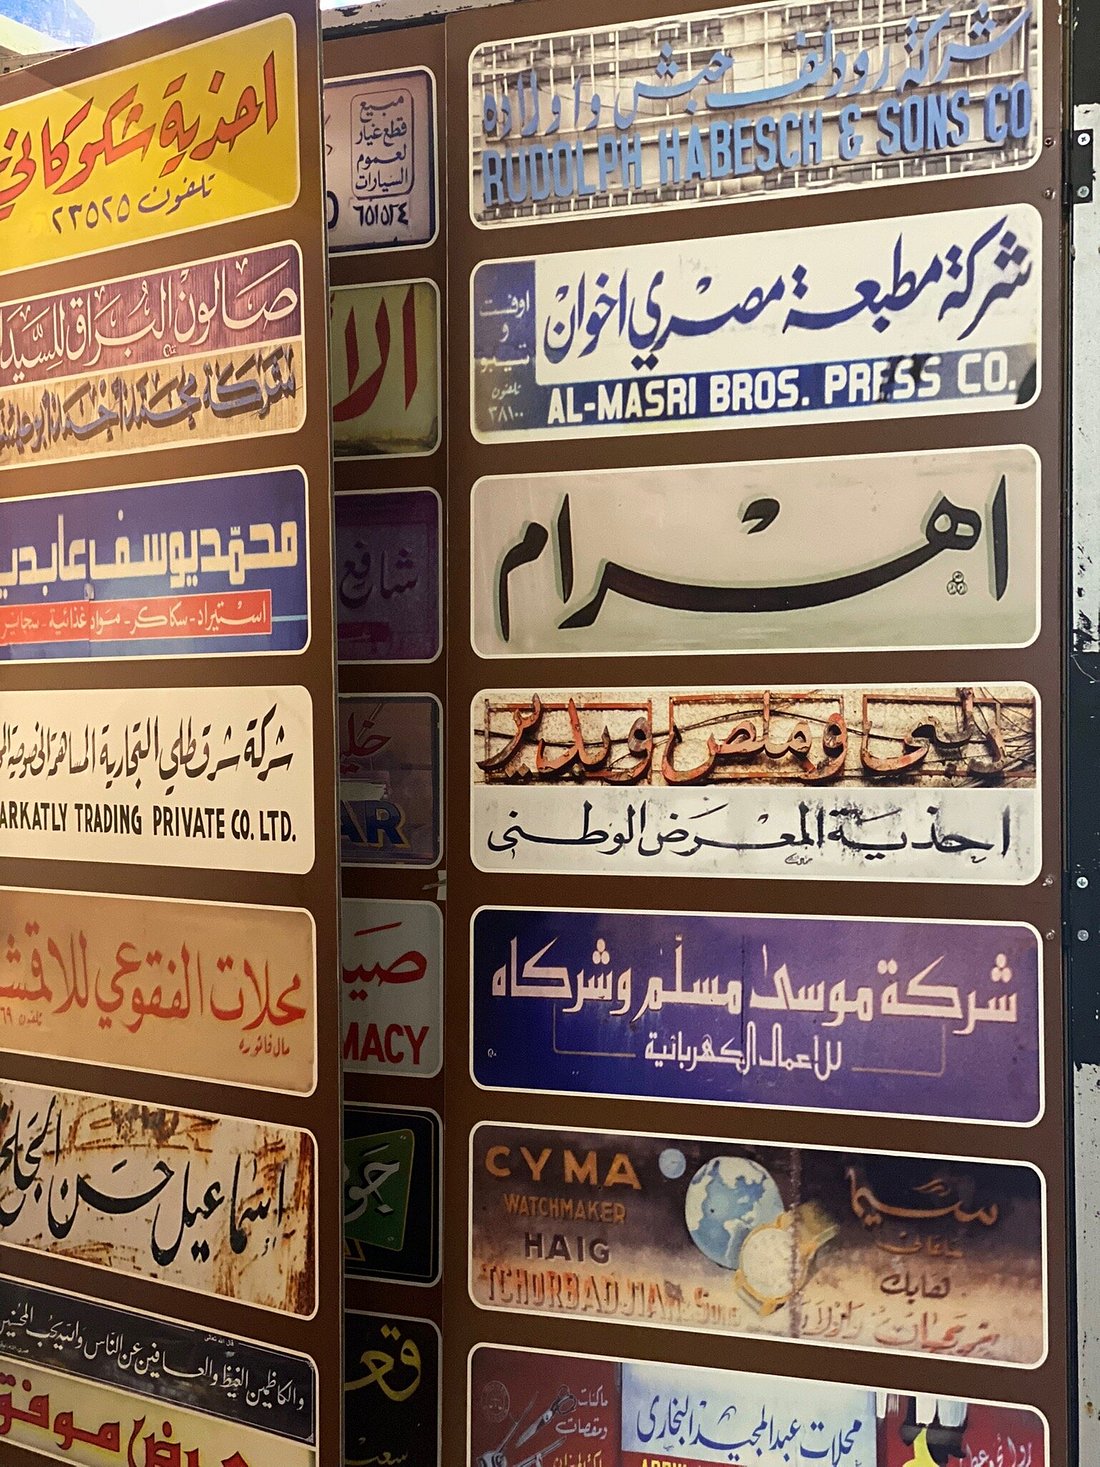 احذية شكوكاني
تلفون ٢٣٥٢٥
صالون البراق للسيدا
شركة محمد احمد ابو عيشة
محمد يوسف عابدين
استيراد - سكاكر - مواد غذائية - سجاير
شركة شرقطلي التجارية المساهمة الخصوصية
ARKATLY TRADING PRIVATE CO. LTD.
محلات الفقوعي للاقمش
مال فاتوره
تلفون ٦٩
اسماعيل حسن
قال الله تعالى
والكاظمين الغيظ والعافين عن الناس والله يحب المحسنين
معرض موفق
مبيع
قطع غيار
لعموم
السيارات
٦٥١٥٢٤
الا
شافع
خلي
AR
صيد
MACY
جو
قع
سعيد
شركة رودلف حبش واولاده
RUDOLPH HABESCH & SONS CO
شركة مطبعة مصري اخوان
اوفست
و
تيبو
تلفون
٣٨١٠٠
AL-MASRI BROS. PRESS CO.
اهرام
لبى وملص وبدير
احذية المعرض الوطني
شركة موسى مسلّم وشركاه
للاعمال الكهربائية
CYMA
WATCHMAKER
HAIG
TCHORBADJIAN & Sons
سيما
ساعاتي
هايك
شربجيان واولاده
ماكنات
ومقصات
محلات عبد المجيد البخاري
روائح وعطور